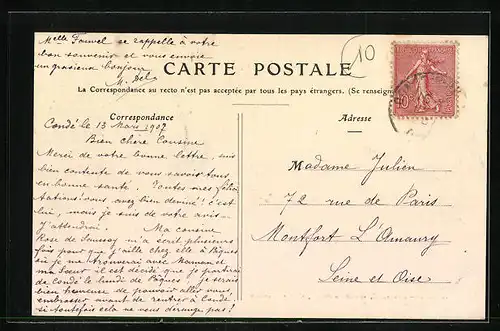 Melle Fauvel se rappelle à votre
bon souvenir et vous envoie
un gracieux bonjour
M. Del
10
CARTE POSTALE
La Correspondance au recto n'est pas acceptée par tous les pays étrangers. (Se renseign
Correspondance
Adresse
Condé le 13 Mars 1907
Bien chère Cousine
Merci de votre bonne lettre, suis
bien contente de vous savoir tous
en bonne santé. Toutes mes félici
tations! vous avez bien deviné! c'est
lui, mais je suis de votre avis
J'attendrai. Ma cousine
Rose de m'a écrit plusieurs
fois pour que j'aille chez elle à Pâques
où je me trouverai avec Maman et
ma Sœur il est décidé que je partirai
de Condé le lundi de Pâques je serais
bien heureuse de pouvoir aller vous
embrasser avant de rentrer à Condé
si toutefois cela ne vous dérange pas!
Madame Julien
72 rue de Paris
Montfort L'Amaury
Seine et Oise